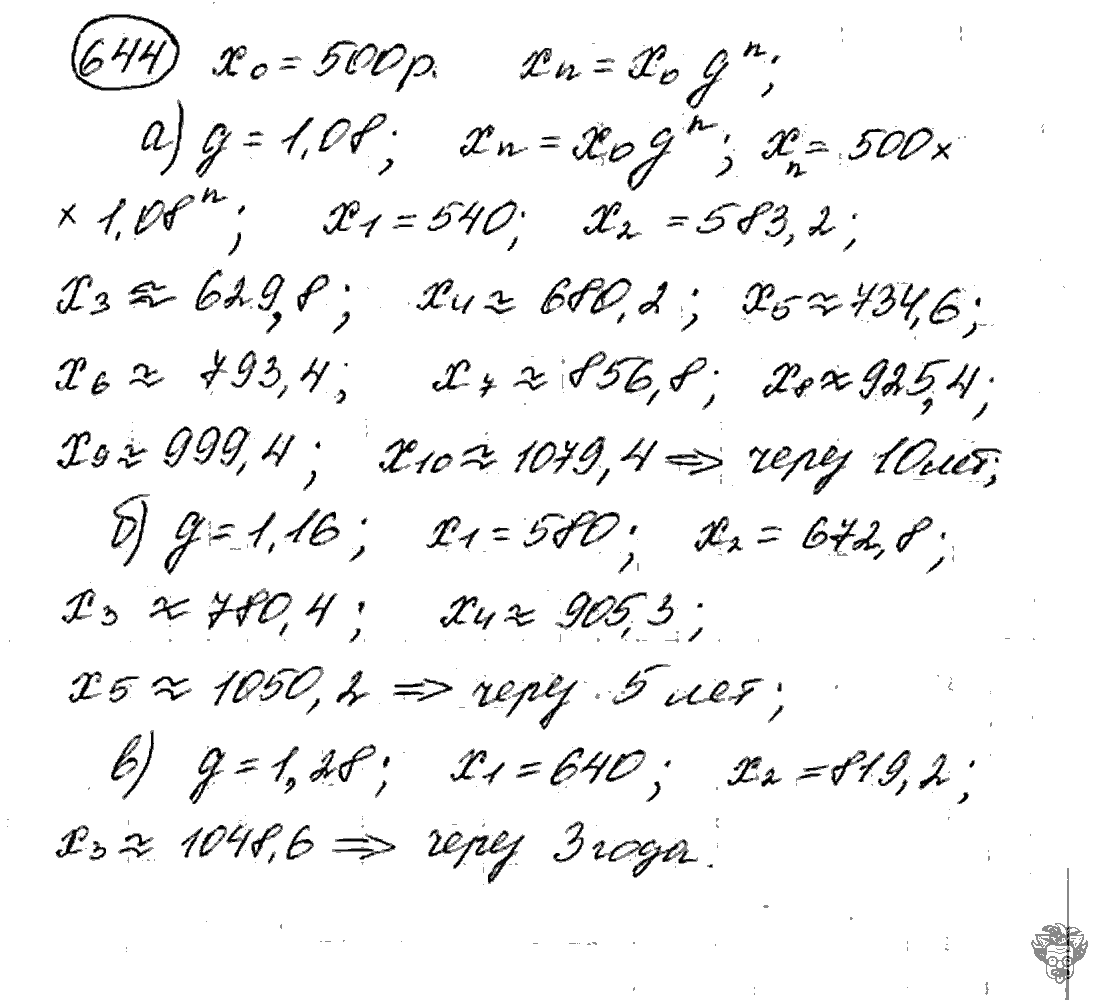 644 x₀ = 500р. xₙ = x₀ gⁿ;
а) g = 1,08; xₙ = x₀ gⁿ; xₙ = 500 ×
× 1,08ⁿ; x₁ = 540; x₂ = 583,2;
x₃ ≈ 629,8; x₄ ≈ 680,2; x₅ ≈ 734,6;
x₆ ≈ 793,4; x₇ ≈ 856,8; x₈ ≈ 925,4;
x₉ ≈ 999,4; x₁₀ ≈ 1079,4 ⇒ через 10 лет;
б) g = 1,16; x₁ = 580; x₂ = 672,8;
x₃ ≈ 780,4; x₄ ≈ 905,3;
x₅ ≈ 1050,2 ⇒ через 5 лет;
в) g = 1,28; x₁ = 640; x₂ = 819,2;
x₃ ≈ 1048,6 ⇒ через 3 года.